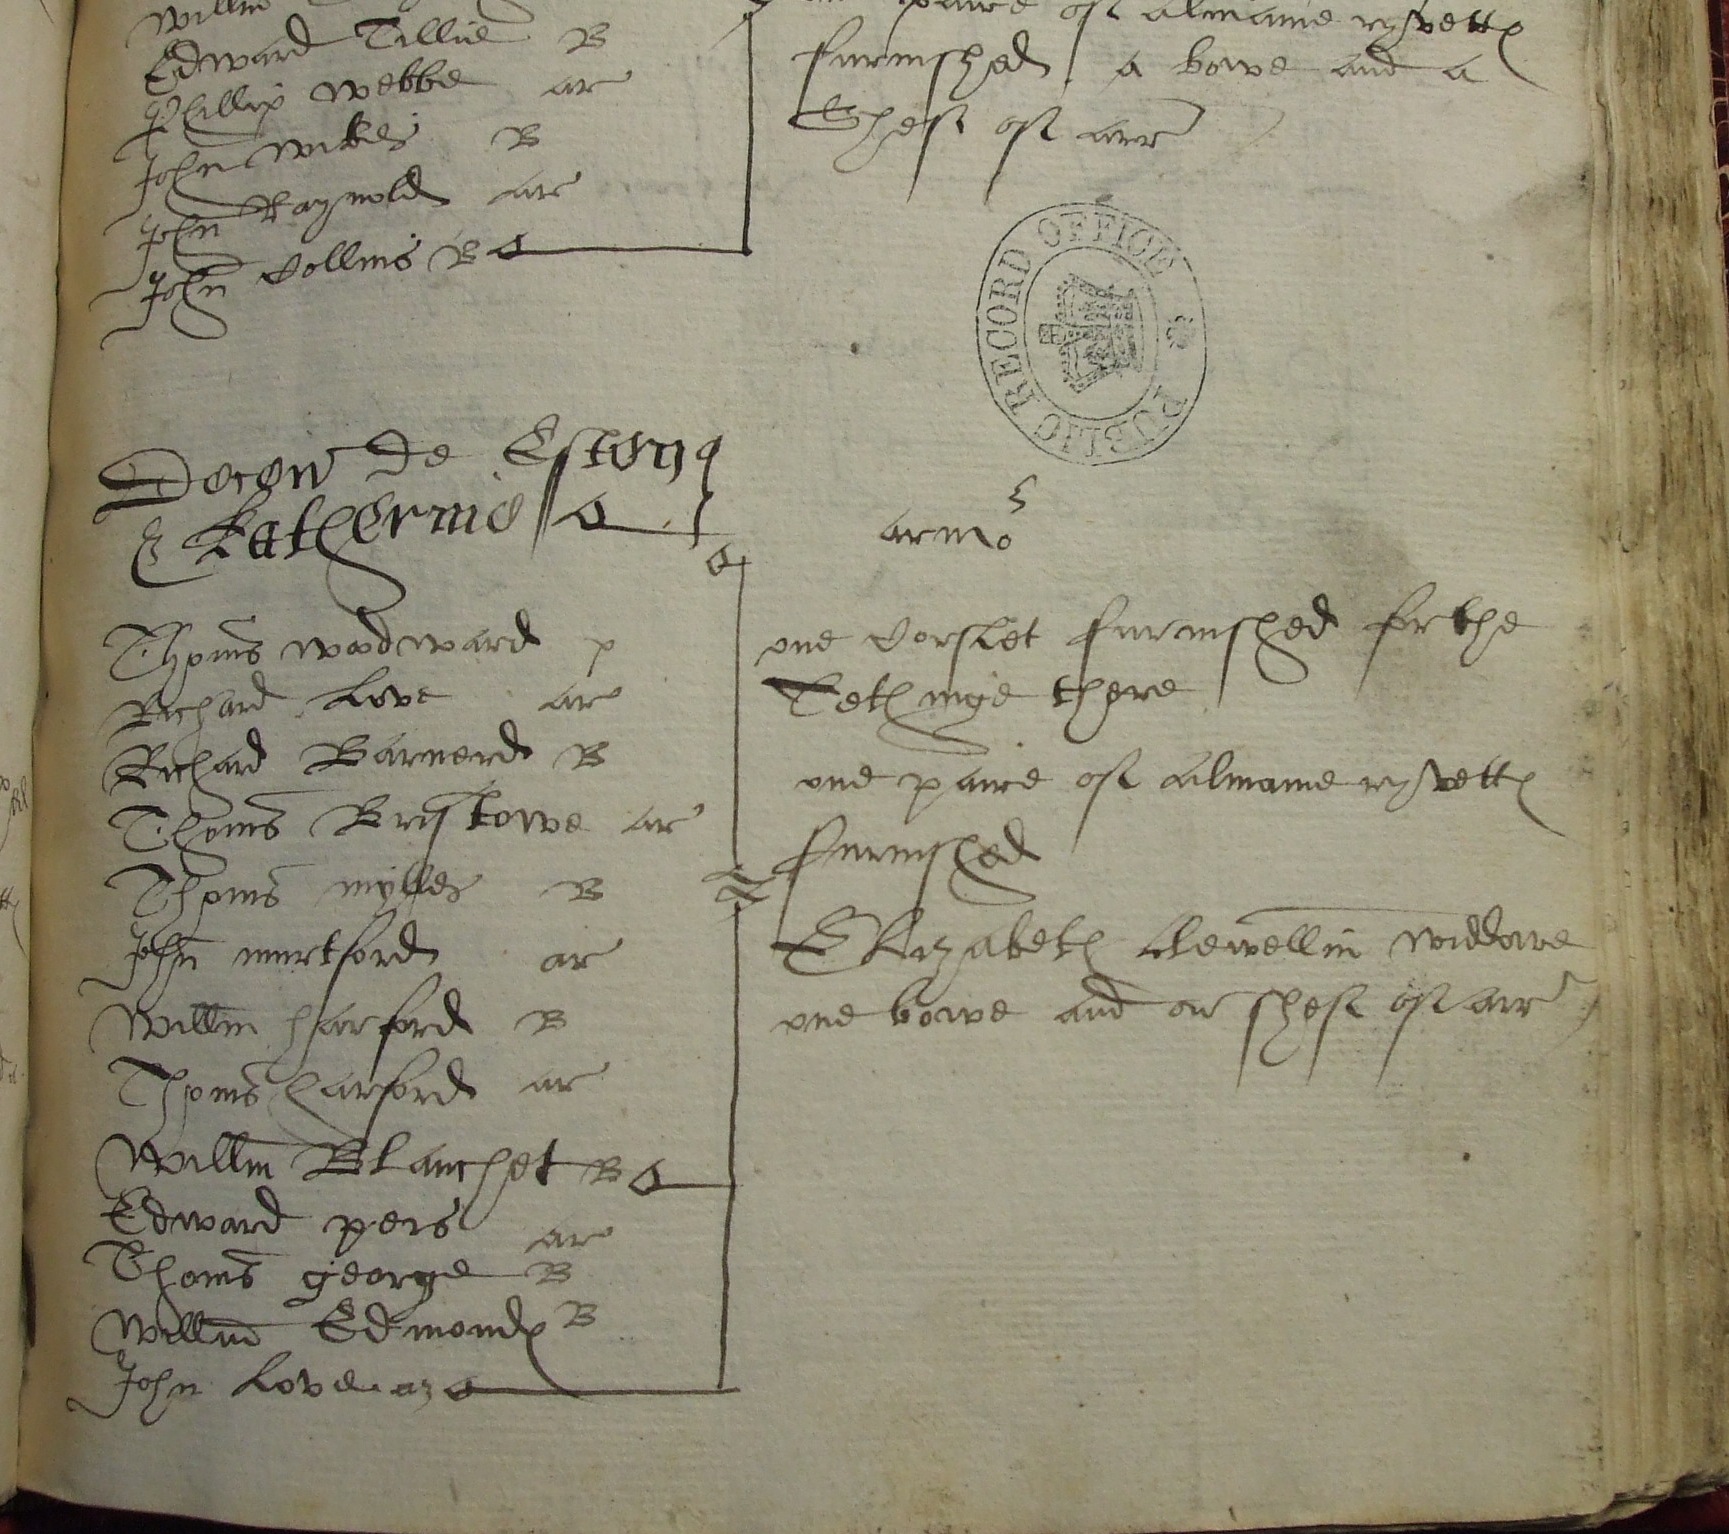 Willm
Edward Tillie B
Phillip Webbe ar
John Wikes B
John Raynold ar
John Collins B
one paire of almaine ryvett
furnished a bowe and a
Shefe of arr
PUBLIC RECORD OFFICE
Decen de Eston
Katherine
armo
Thoms Woodward p
Richard Love ar
Richard Barnerd B
Thoms Bristowe ar
Thoms mylles B
John murtford ar
Willm harford B
Thoms harford ar
Willm Blanchet B
Edward pers ar
Thoms george B
Willm Edmond B
John Love ar
one Corslet furnished for the
Tethinge there
one paire of almaine ryvett
furnished
Elizabeth llewellin widdowe
one bowe and on shefe of arr